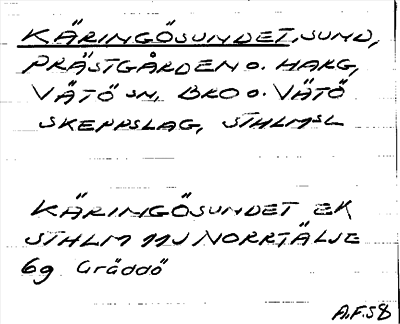 KÄRINGÖSUNDET, SUND,
PRÄSTGÅRDEN o. HARG,
VÄTÖ SN, BRO o. VÄTÖ
SKEPPSLAG, STHLMSL
KÄRINGÖSUNDET EK
STHLM 11J NORRTÄLJE
6g Gräddö
A.F.58